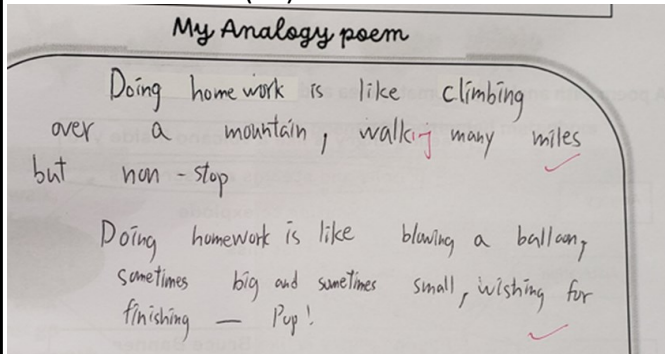 My Analogy poem
Doing homework is like climbing
over a mountain, walking many miles
but non-stop
Doing homework is like blowing a balloon,
sometimes big and sometimes small, wishing for
finishing — Pop!